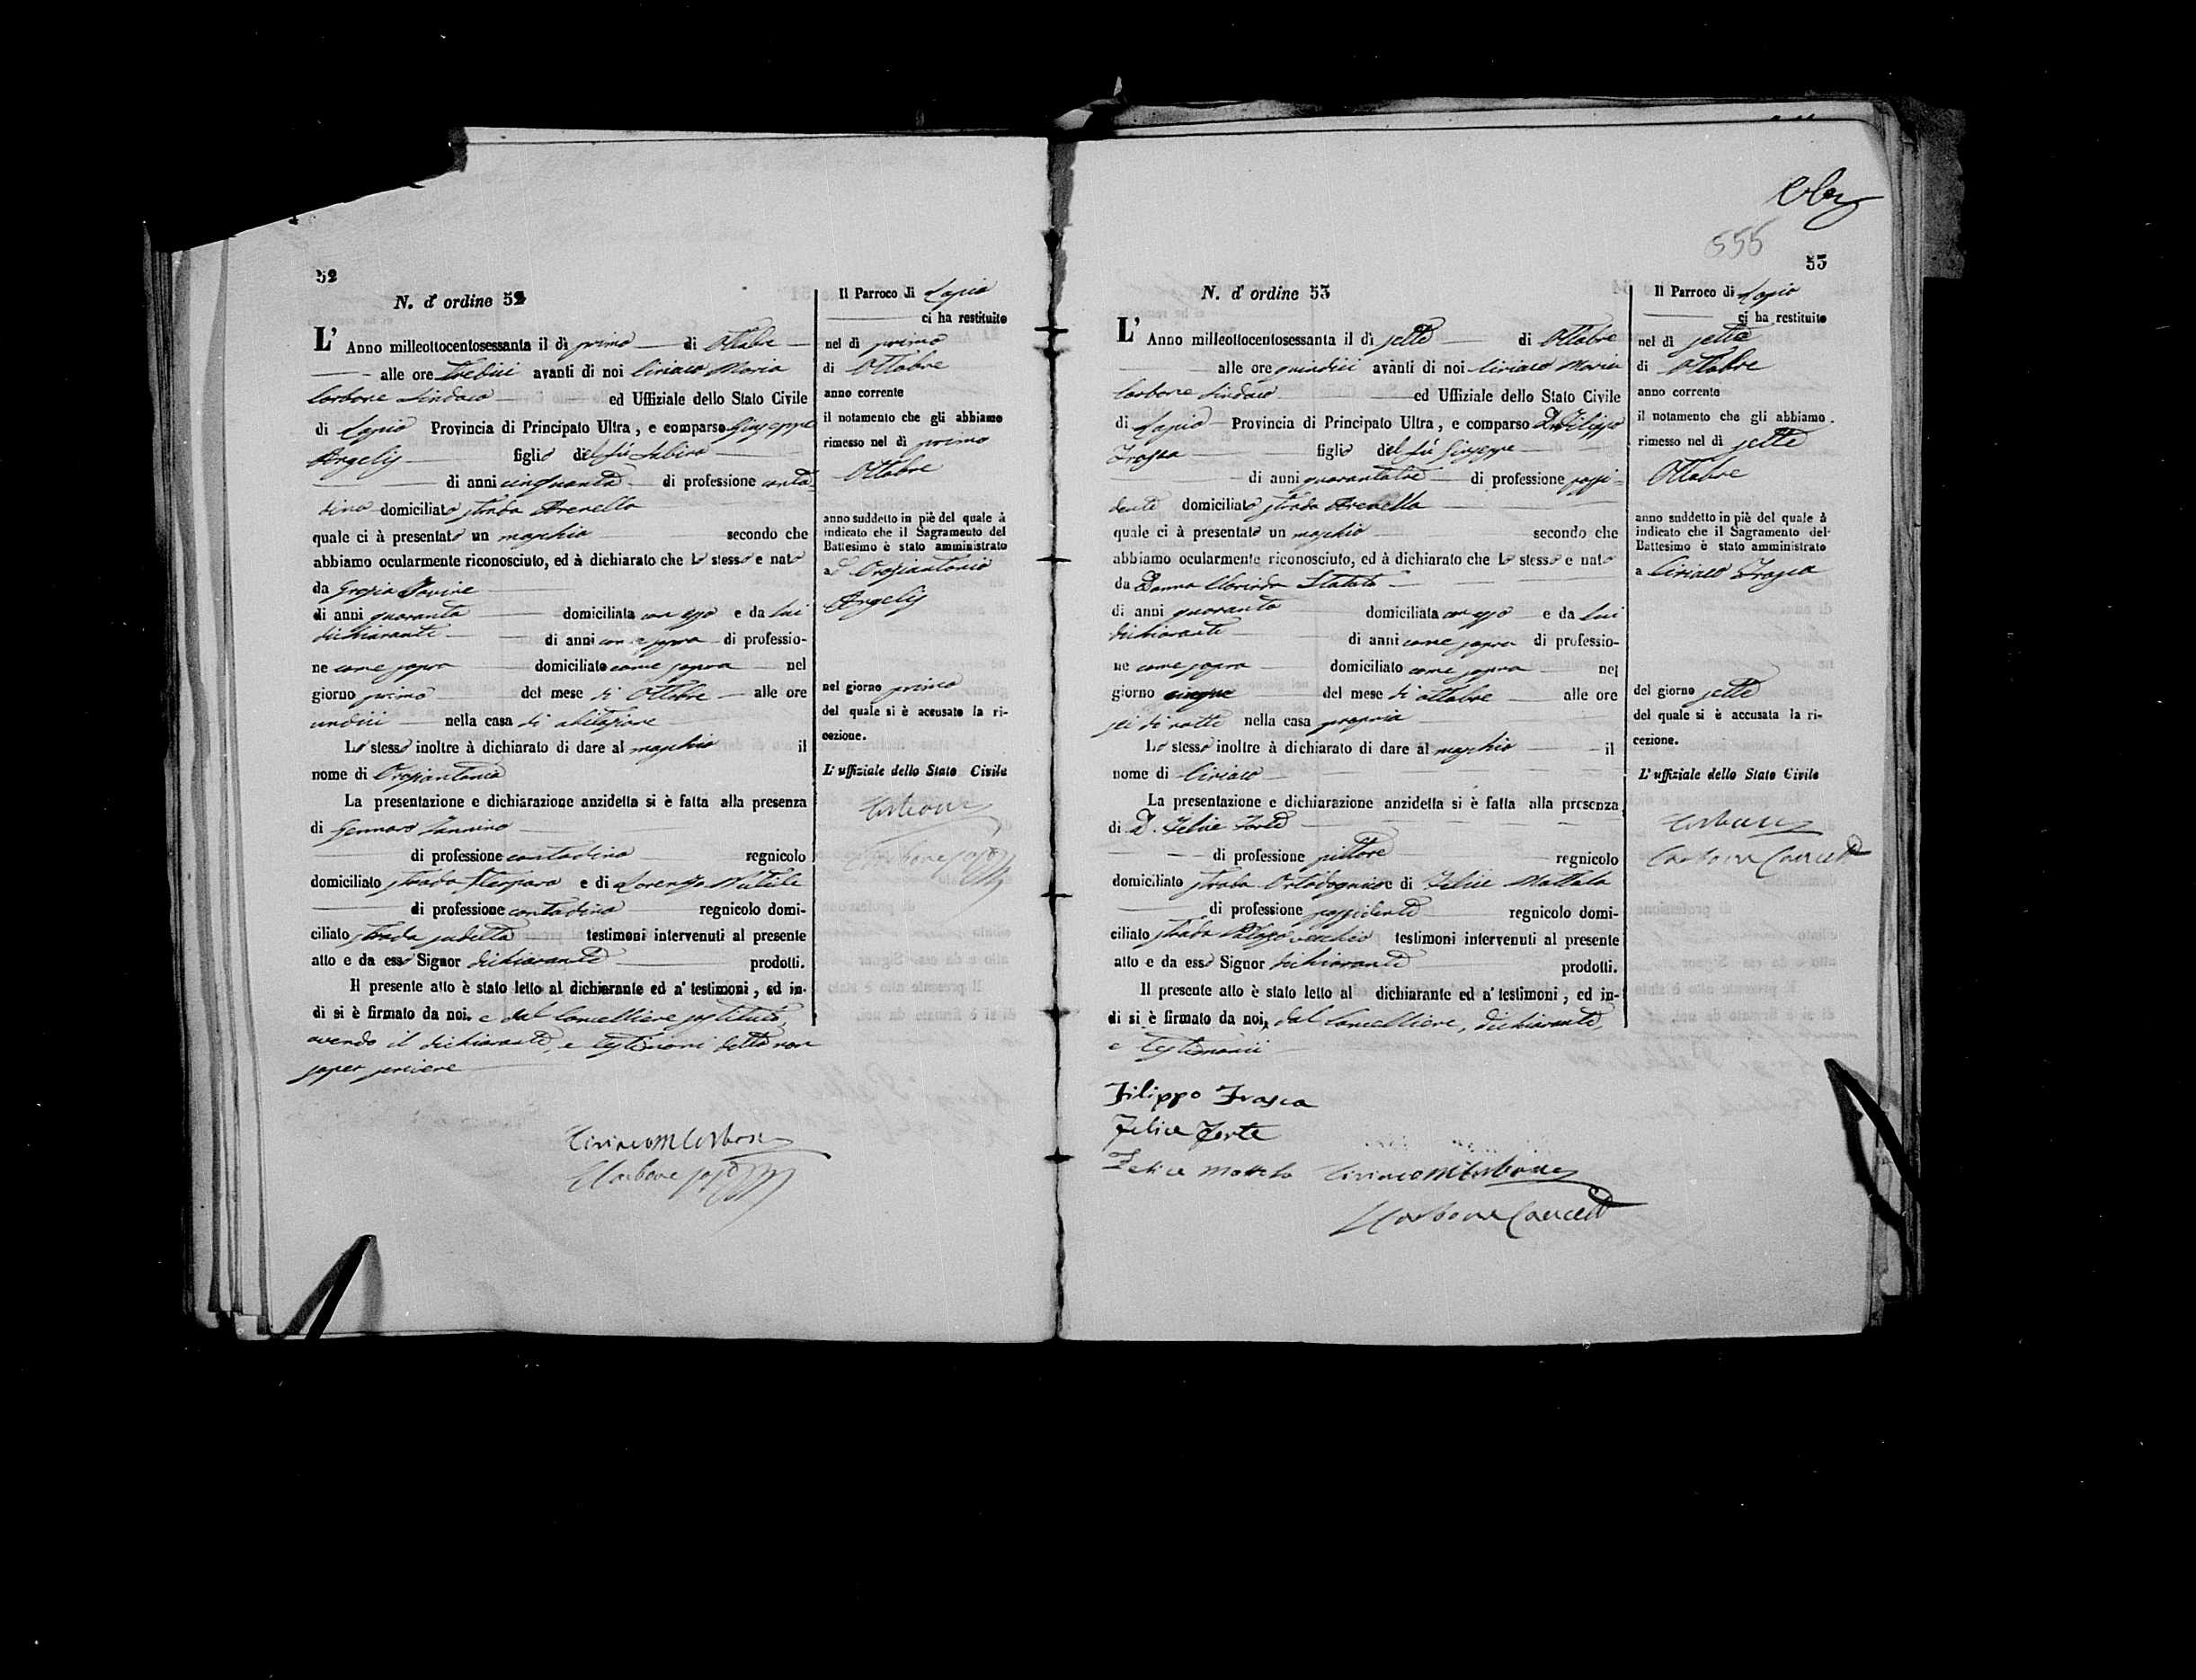 52
N. d' ordine 52
L' Anno milleottocentosessanta il dì primo di Ottobre
alle ore tredici avanti di noi Ciriaco Maria
Carbone Sindaco ed Uffiziale dello Stato Civile
di Lapio Provincia di Principato Ultra, e comparso Giuseppe
Angelis figlio del fu Sabino
di anni cinquanta di professione conta-
dino domiciliato strada Arenella
quale ci à presentato un maschio secondo che
abbiamo ocularmente riconosciuto, ed à dichiarato che lo stesso e nato
da Grazia Iovine
di anni quaranta domiciliata con esso e da lui
dichiarante di anni come sopra di professio-
ne come sopra domiciliato come sopra nel
giorno primo del mese di Ottobre alle ore
undici nella casa di abitazione
Lo stesso inoltre à dichiarato di dare al maschio il
nome di Oraziantonio
La presentazione e dichiarazione anzidetta si è fatta alla presenza
di Gennaro Iannino
di professione contadino regnicolo
domiciliato strada e di Lorenzo
di professione contadino regnicolo domi-
ciliato strada sudetta testimoni intervenuti al presente
atto e da esso Signor dichiarante prodotti.
Il presente atto è stato letto al dichiarante ed a' testimoni, ed in-
di si è firmato da noi, e dal Cancelliere sostituto,
avendo il dichiarante, e testimoni detto non
saper scrivere
Ciriaco M Carbone
Carbone
Il Parroco di Lapio
ci ha restituito
nel dì primo
di Ottobre
anno corrente
il notamento che gli abbiamo
rimesso nel dì primo
Ottobre
anno suddetto in piè del quale à
indicato che il Sagramento del
Battesimo è stato amministrato
ad Oraziantonio
Angelis
nel giorno primo
del quale si è accusato la ri-
cezione.
L' uffiziale dello Stato Civile
Carbone
Carbone
555
53
N. d' ordine 53
L' Anno milleottocentosessanta il dì sette di Ottobre
alle ore quindici avanti di noi Ciriaco Maria
Carbone Sindaco ed Uffiziale dello Stato Civile
di Lapio Provincia di Principato Ultra, e comparso D. Filippo
Frasca figlio del fu Giuseppe
di anni quarantatre di professione possi-
dente domiciliato strada Arenella
quale ci à presentato un maschio secondo che
abbiamo ocularmente riconosciuto, ed à dichiarato che lo stesso e nato
da Donna Clorinda
di anni quaranta domiciliata con esso e da lui
dichiarante di anni come sopra di professio-
ne come sopra domiciliato come sopra nel
giorno cinque del mese di ottobre alle ore
sei di notte nella casa propria
Lo stesso inoltre à dichiarato di dare al maschio il
nome di Ciriaco
La presentazione e dichiarazione anzidetta si è fatta alla presenza
di D. Felice Forte
di professione pittore regnicolo
domiciliato strada e di Felice Mottola
di professione possidente regnicolo domi-
ciliato strada Palazzo vecchio testimoni intervenuti al presente
atto e da esso Signor dichiarante prodotti.
Il presente atto è stato letto al dichiarante ed a' testimoni, ed in-
di si è firmato da noi, dal Cancelliere, dichiarante,
e testimonii
Filippo Frasca
Felice Forte
Felice Mottola Ciriaco M Carbone
Carbone Cancell
Il Parroco di Lapio
ci ha restituito
nel dì sette
di Ottobre
anno corrente
il notamento che gli abbiamo
rimesso nel dì sette
Ottobre
anno suddetto in piè del quale à
indicato che il Sagramento del
Battesimo è stato amministrato
a Ciriaco Frasca
del giorno sette
del quale si è accusata la ri-
cezione.
L' uffiziale dello Stato Civile
Carbone
Carbone Cancell